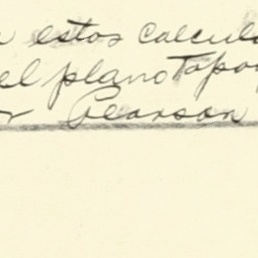 estos calcul
el plano Topo
Pearson